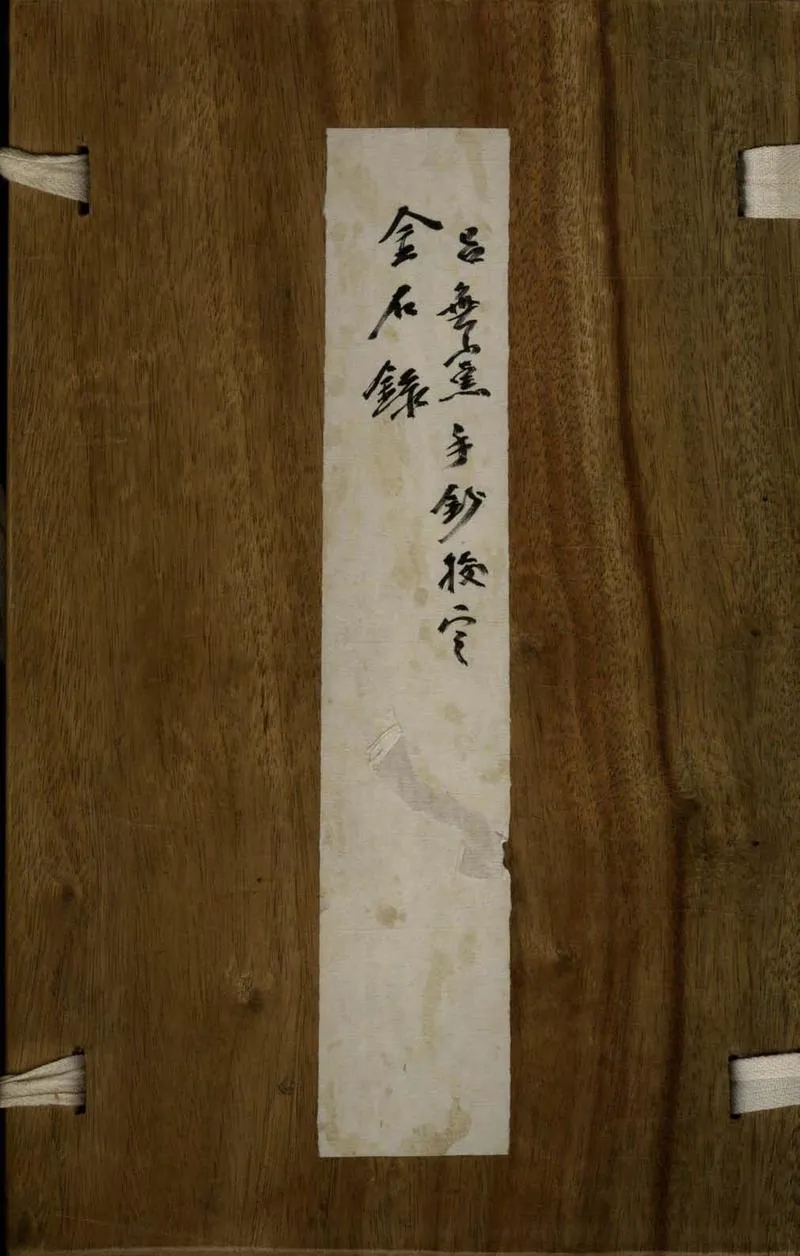 呂無黨手鈔挍定
金石錄